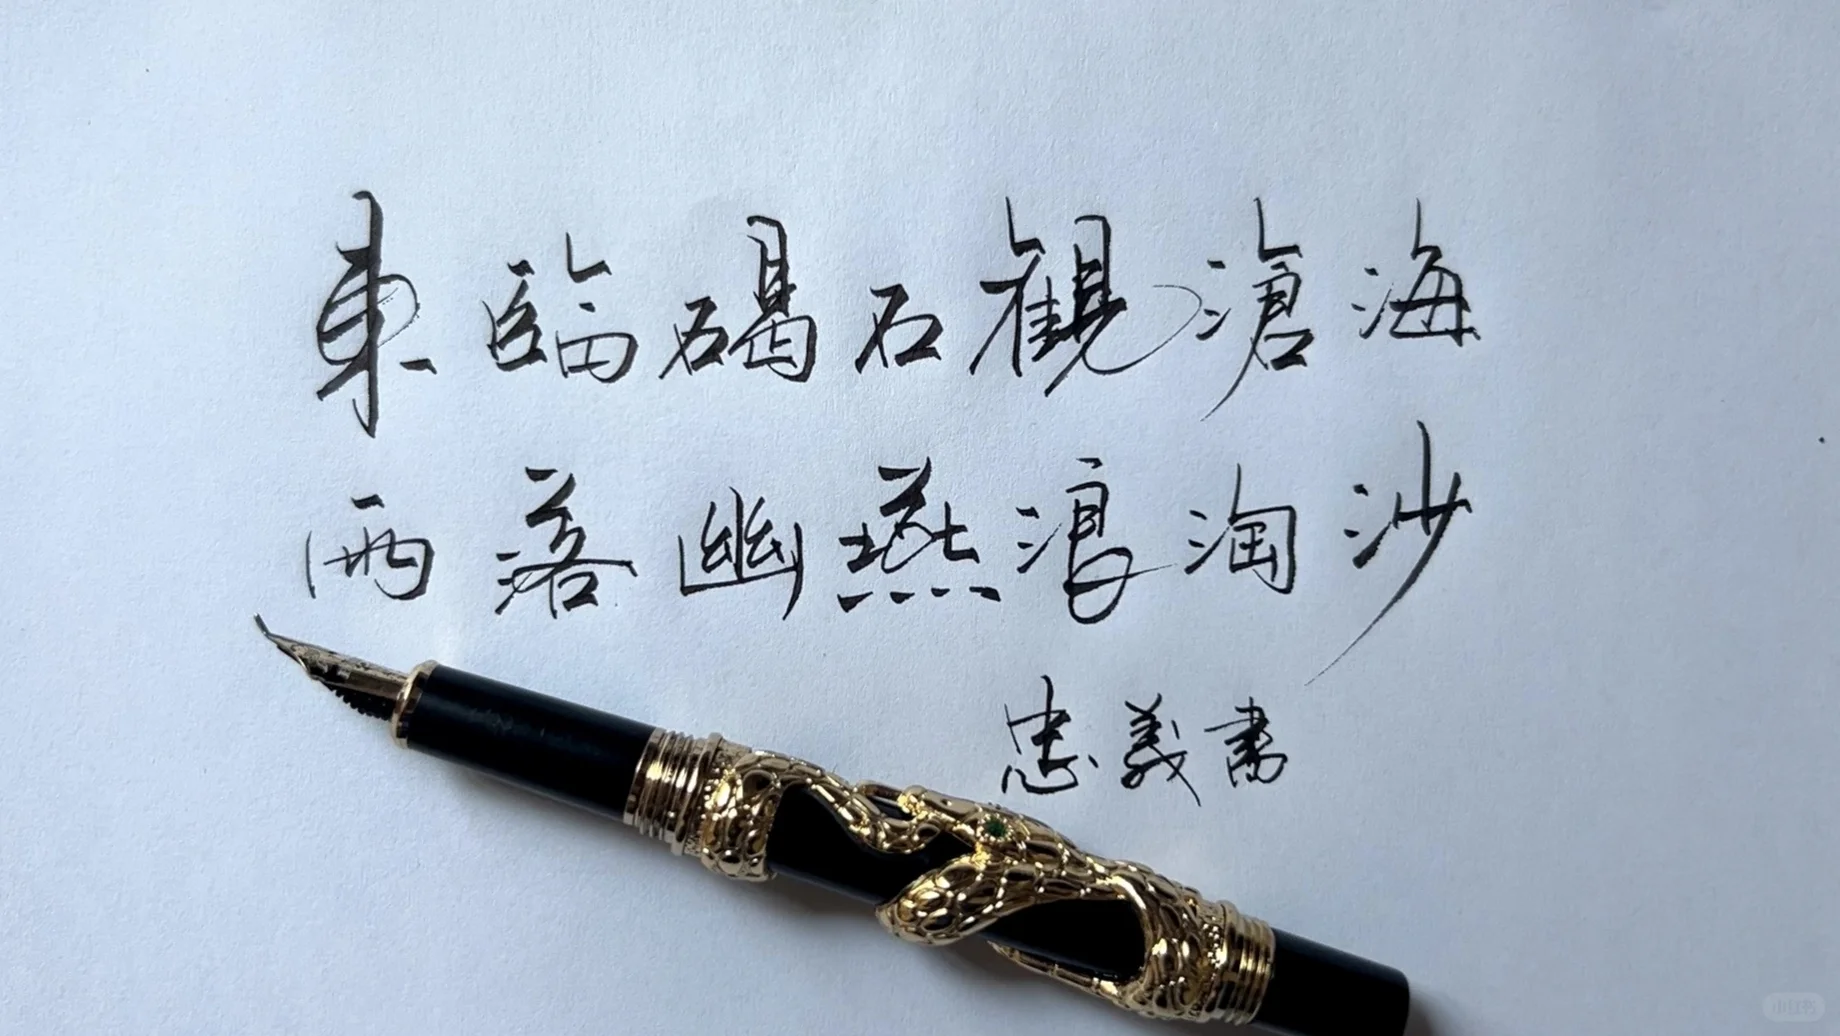 東臨碣石觀滄海
雨落幽燕浪淘沙
忠義書
小红书